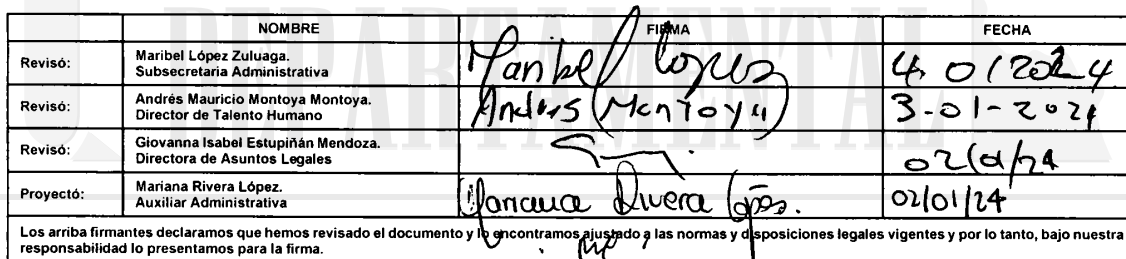 DEPARTAMENTAL
NOMBRE FIRMA FECHA
Revisó: Maribel López Zuluaga.
Subsecretaria Administrativa Maribel López 4 01 2024
Revisó: Andrés Mauricio Montoya Montoya.
Director de Talento Humano Andrés Montoya 3-01-2024
Revisó: Giovanna Isabel Estupiñán Mendoza.
Directora de Asuntos Legales 02/01/24
Proyectó: Mariana Rivera López.
Auxiliar Administrativa Mariana Rivera López. 02/01/24
Los arriba firmantes declaramos que hemos revisado el documento y lo encontramos ajustado a las normas y disposiciones legales vigentes y por lo tanto, bajo nuestra
responsabilidad lo presentamos para la firma.